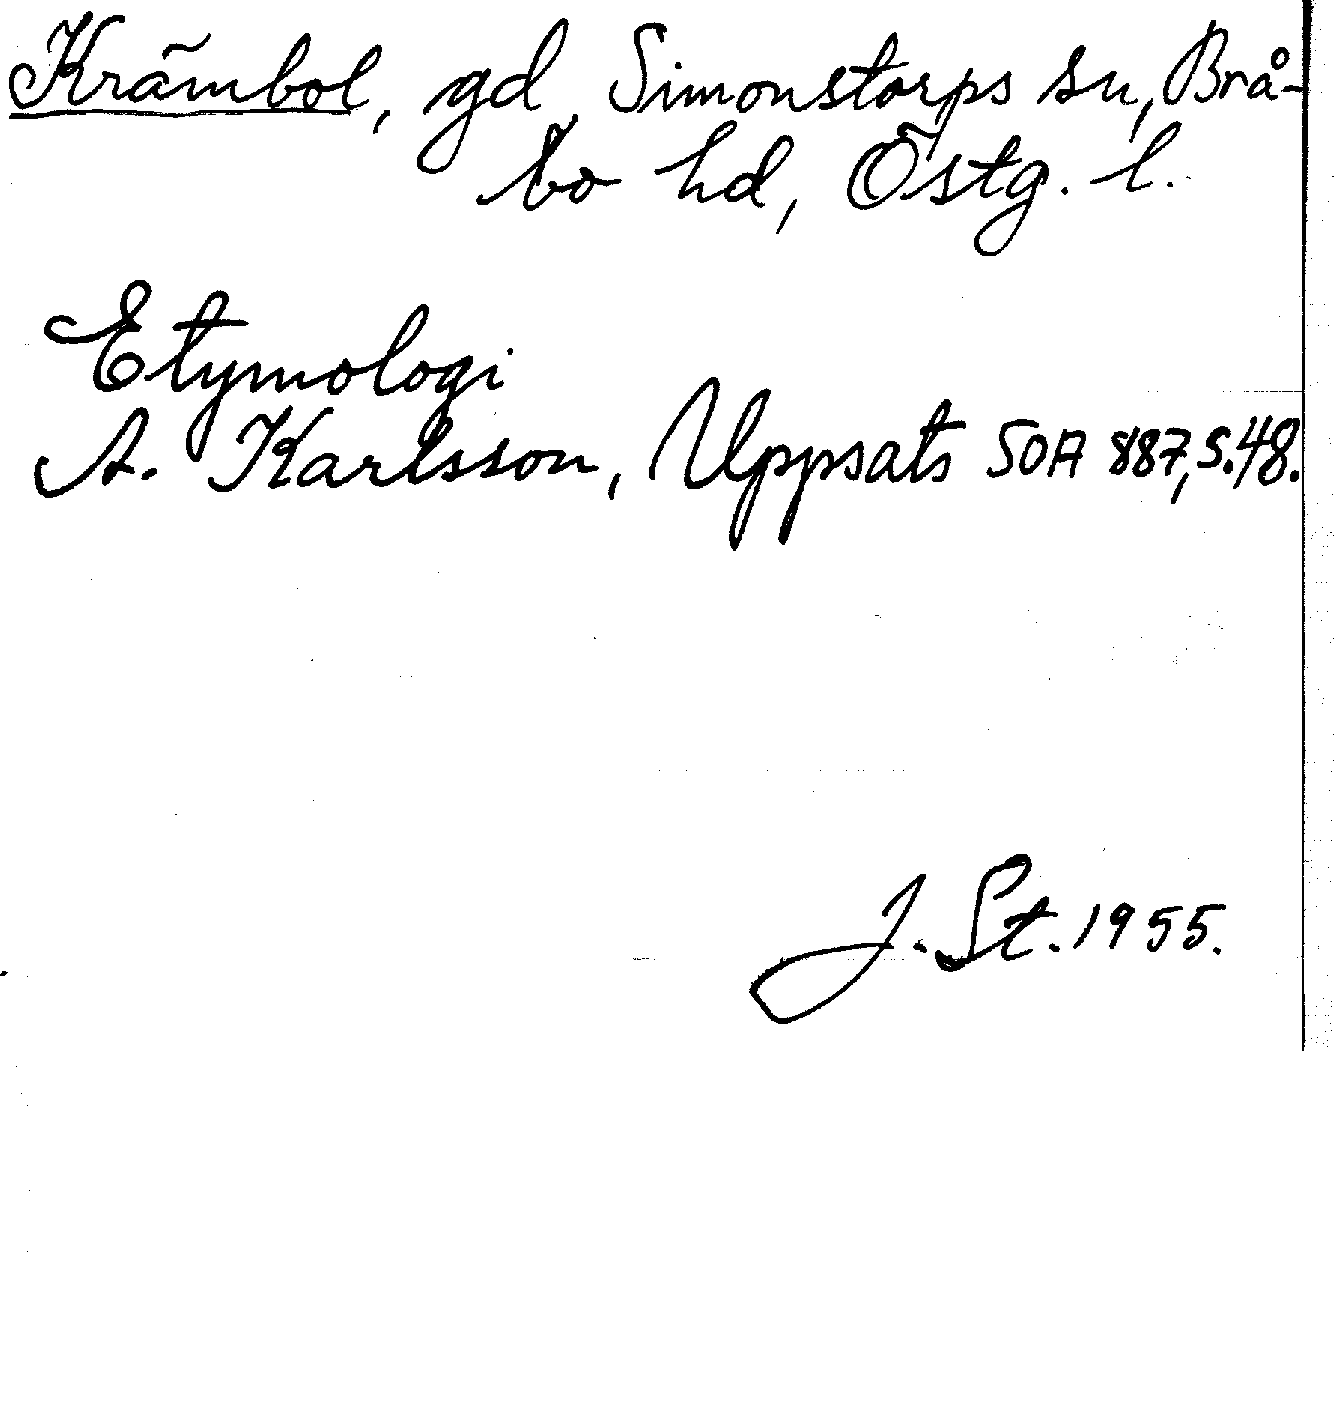 Krämbol, gd, Simonstorps sn, Brå-
bo hd, Östg. l.
Etymologi
A. Karlsson, Uppsats SOA 887, s. 48.
J. St. 1955.